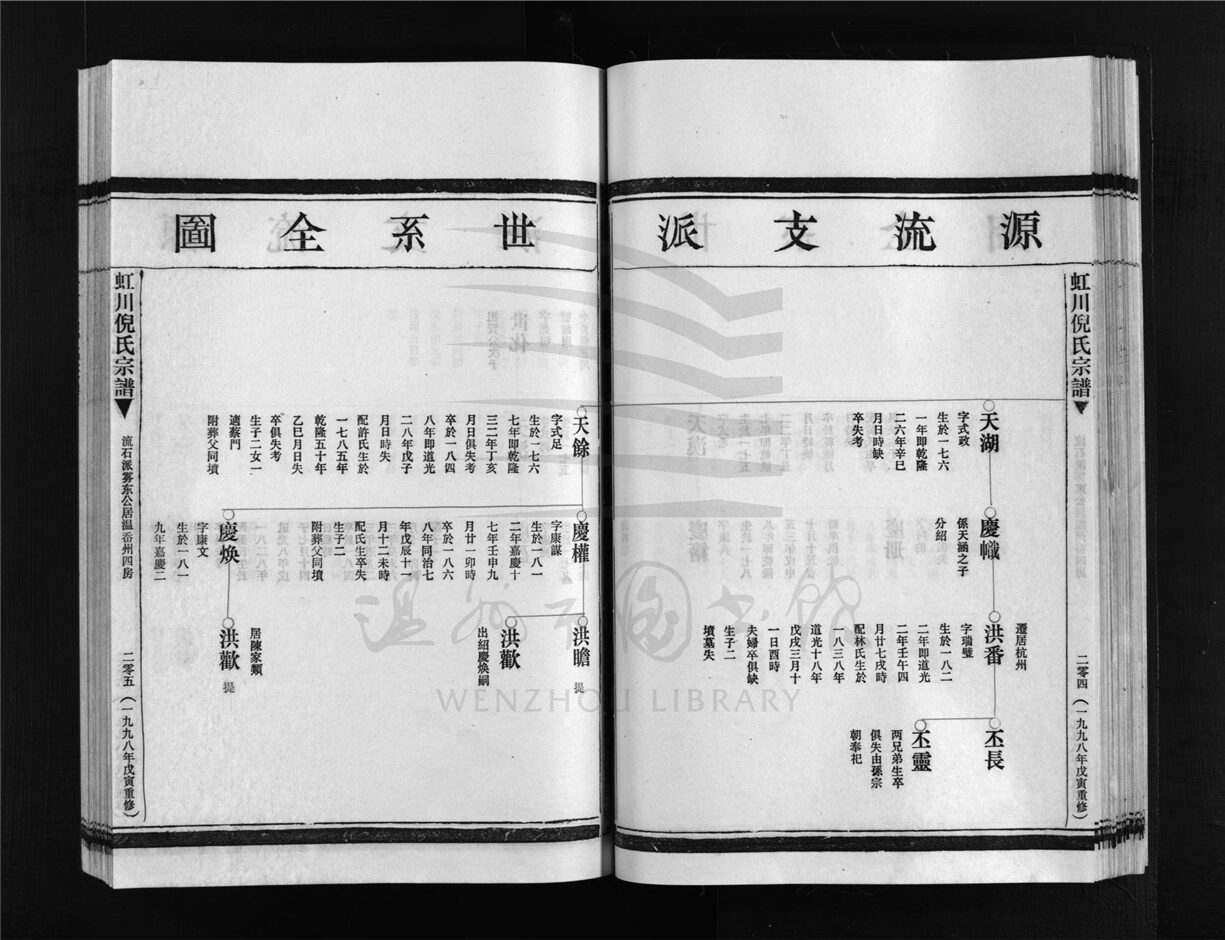 源流支派
虹川倪氏宗譜
二零四(一九九八年戊寅重修)
天湖
字式政
生於一七六
一年即乾隆
二六年辛巳
月日時缺
卒失考
慶幟
係天涵之子
分紹
遷居杭州
洪番
字瑞璧
生於一八二
二年即道光
二年壬午四
月廿七戌時
配林氏生於
一八三八年
道光十八年
戊戌三月十
一日酉時
夫婦卒俱缺
生子二
墳墓失
丕長
丕靈
两兄弟生卒
俱失由孫宗
朝奉祀
世系全圖
天餘
字式足
生於一七六
七年即乾隆
三二年丁亥
月日俱失考
卒於一八四
八年即道光
二八年戊子
月日時失
配許氏生於
一七八五年
乾隆五十年
乙巳月日失
卒俱失考
生子二女一
適蔡門
附葬父同墳
慶權
字康謀
生於一八一
二年嘉慶十
七年壬申九
月廿一卯時
卒於一八六
八年同治七
年戊辰十一
月十二未時
配氏生卒失
生子二
附葬父同墳
慶焕
字康文
生於一八一
九年嘉慶二
洪瞻 提
洪歡
出紹慶焕嗣
居陳家類
洪歡 提
虹川倪氏宗譜
流石派雾东公居温岙州四房
二零五(一九九八年戊寅重修)
WENZHOU LIBRARY